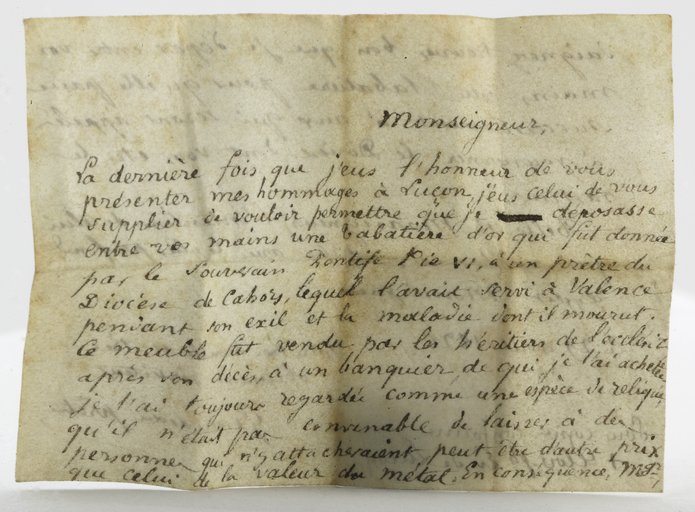 Monseigneur,
La dernière fois que j'eus l'honneur de vous
présenter mes hommages à Luçon, j'eus celui de vous
supplier de vouloir permettre que je déposasse
entre vos mains une tabatière d'or qui fut donnée
par le Souverain Pontife Pie VI, à un prêtre du
Diocèse de Cahors, lequel l'avait servi à Valence
pendant son exil et la maladie dont il mourut.
Ce meuble fut vendu par les héritiers de
après son décès, à un banquier, de qui je l'ai achetée
je l'ai toujours regardée comme une espèce de relique,
qu'il n'était pas convenable de laisser à des
personnes qui n'y attacheraient peut être d'autre prix
que celui de la valeur du métal. En conséquence, Mgr,